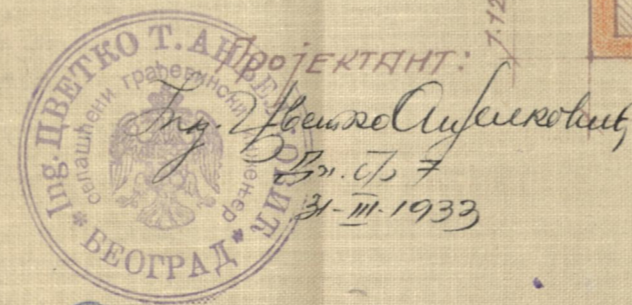 Ing. ЦВЕТКО Т. АНЂЕЛКОВИЋ
овлашћени грађевински инжењер
* БЕОГРАД *
ПРОЈЕКТАНТ:
Инж. Цветко Анђелковић
31-III-1933
1.12